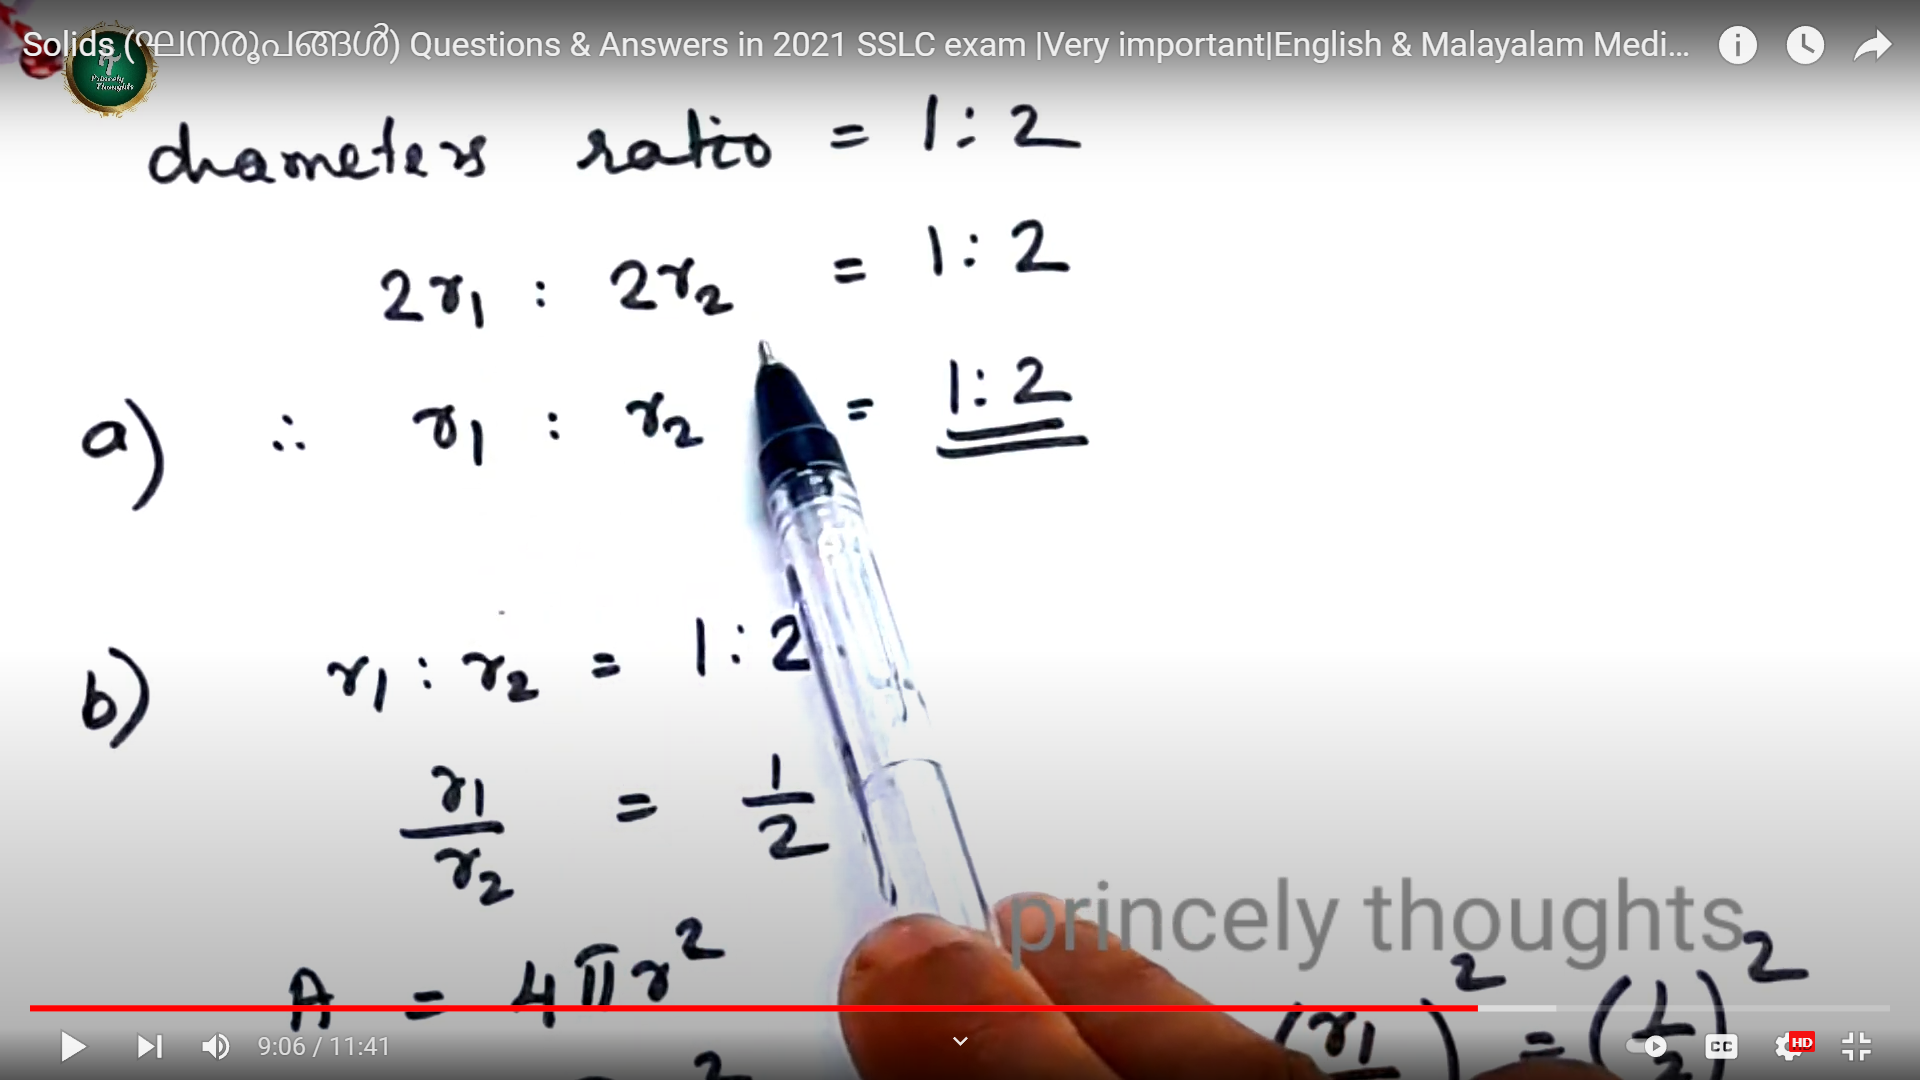 Solids (ഘനരൂപങ്ങൾ) Questions & Answers in 2021 SSLC exam |Very important|English & Malayalam Medi...
Princely
Thoughts
diameters ratio = 1 : 2
2r₁ : 2r₂ = 1 : 2
a) ∴ r₁ : r₂ = 1 : 2
b) r₁ : r₂ = 1 : 2
r₁/r₂ = 1/2
princely thoughts
A = 4πr²
9:06 / 11:41
CC
HD